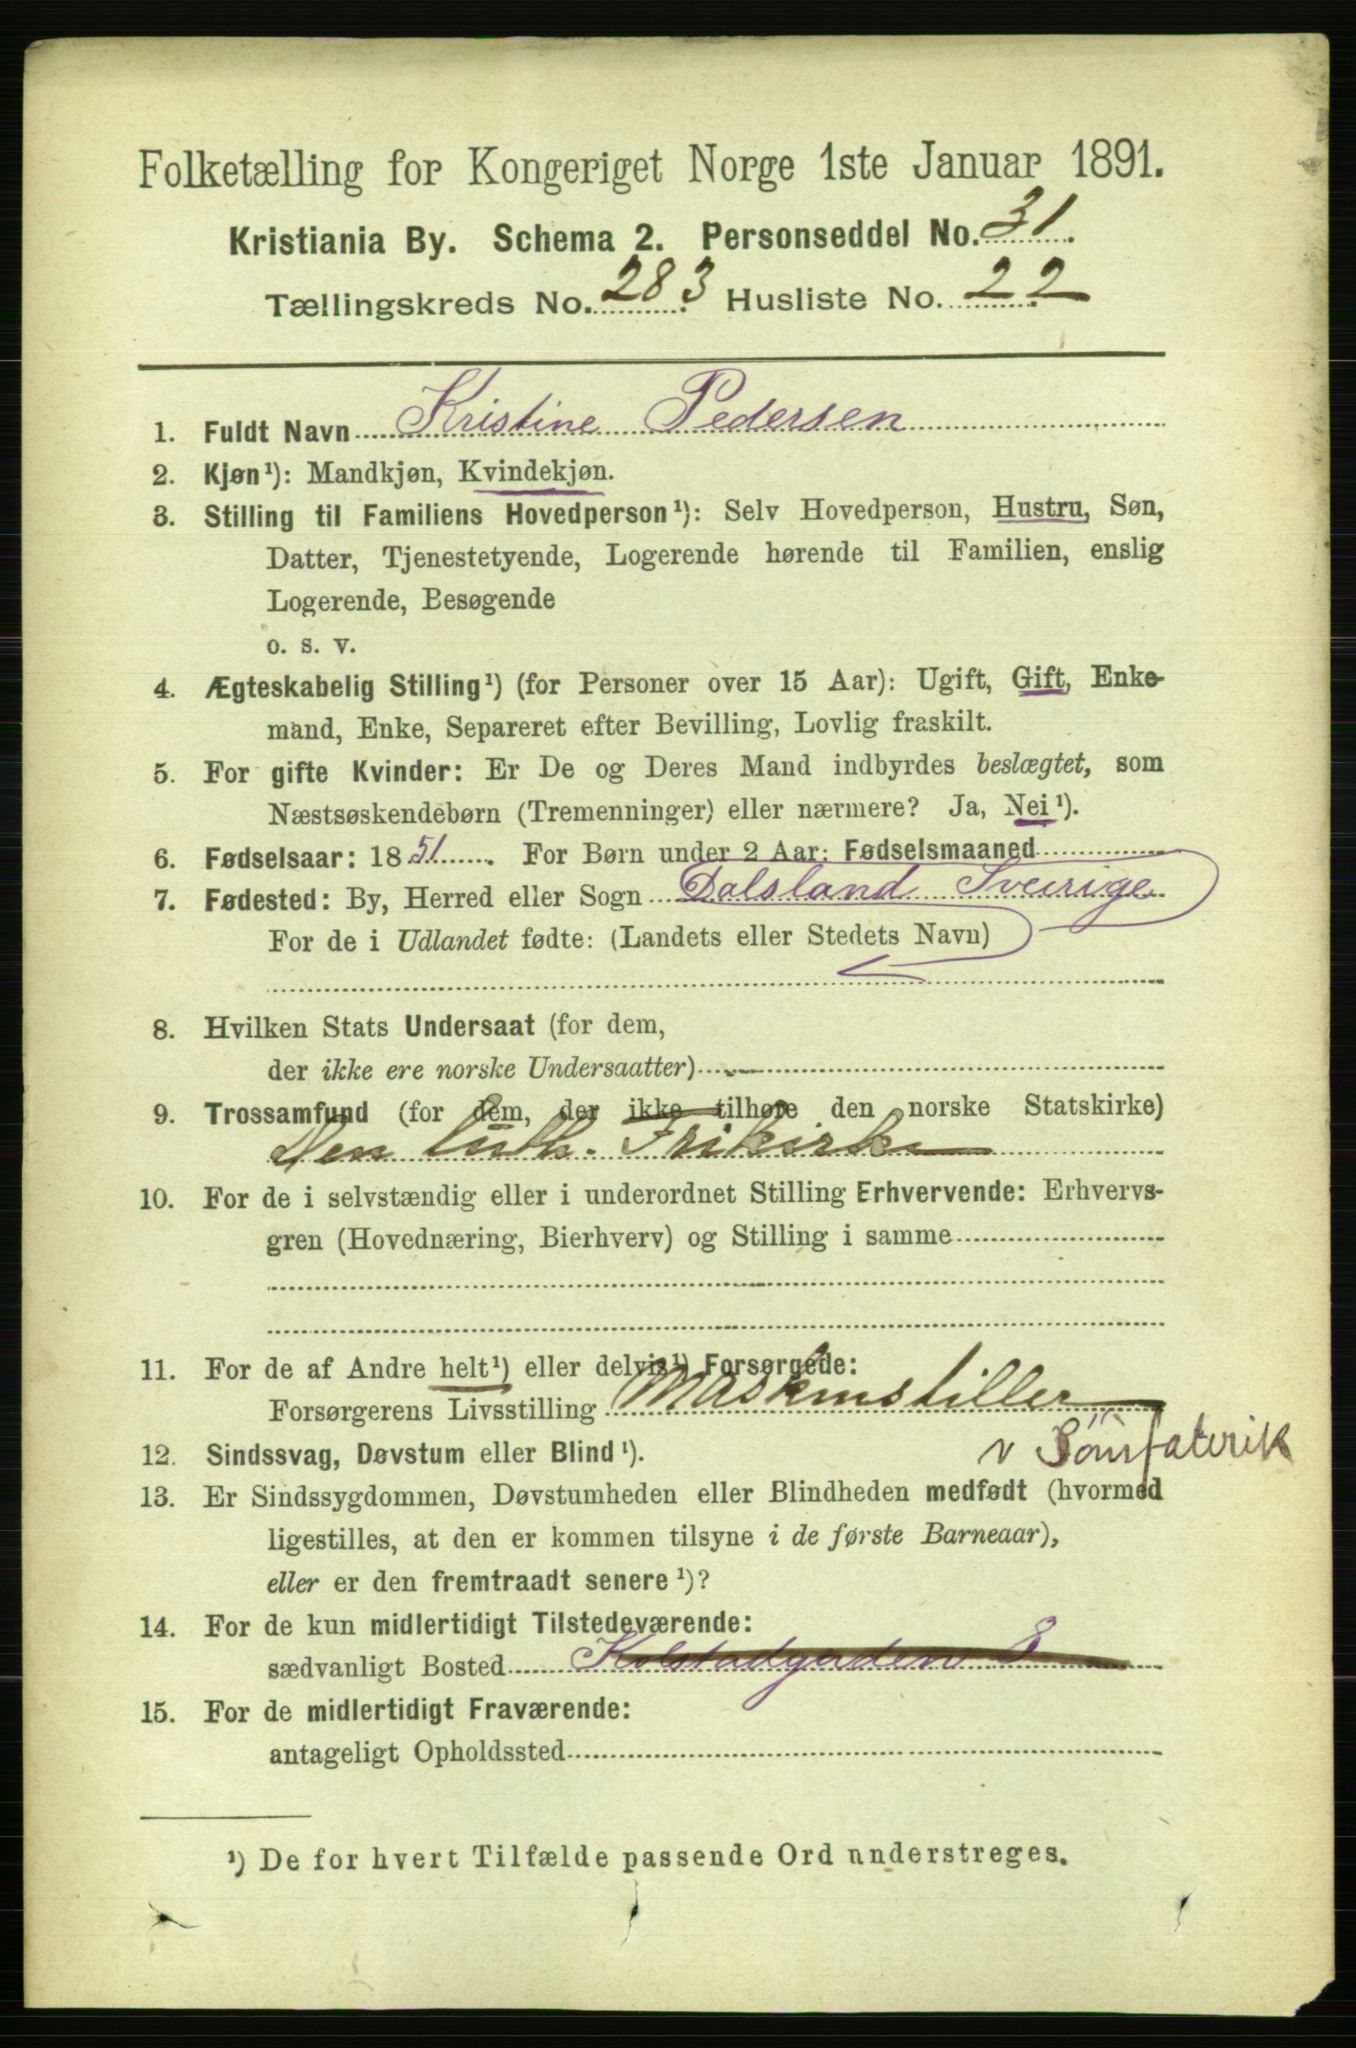 Folketælling for Kongeriget Norge 1ste Januar 1891.
Kristiania By. Schema 2. Personseddel No. 31
Tællingskreds No. 283 Husliste No. 22
1. Fuldt Navn Kristine Pedersen
2. Kjøn¹): Mandkjøn, Kvindekjøn.
3. Stilling til Familiens Hovedperson¹): Selv Hovedperson, Hustru, Søn,
Datter, Tjenestetyende, Logerende hørende til Familien, enslig
Logerende, Besøgende
o. s. v.
4. Ægteskabelig Stilling¹) (for Personer over 15 Aar): Ugift, Gift, Enke-
mand, Enke, Separeret efter Bevilling, Lovlig fraskilt.
5. For gifte Kvinder: Er De og Deres Mand indbyrdes beslægtet, som
Næstsøskendebørn (Tremenninger) eller nærmere? Ja, Nei¹).
6. Fødselsaar: 1851. For Børn under 2 Aar: Fødselsmaaned
7. Fødested: By, Herred eller Sogn Dalsland Sverige
For de i Udlandet fødte: (Landets eller Stedets Navn)
8. Hvilken Stats Undersaat (for dem,
der ikke ere norske Undersaatter)
9. Trossamfund (for dem, der ikke tilhøre den norske Statskirke)
Den luth. Frikirke
10. For de i selvstændig eller i underordnet Stilling Erhvervende: Erhvervs-
gren (Hovednæring, Bierhverv) og Stilling i samme
11. For de af Andre helt¹) eller delvis¹) Forsørgede:
Forsørgerens Livsstilling Maskinstiller
v Sömfabrik
12. Sindssvag, Døvstum eller Blind¹).
13. Er Sindssygdommen, Døvstumheden eller Blindheden medfødt (hvormed
ligestilles, at den er kommen tilsyne i de første Barneaar),
eller er den fremtraadt senere¹)?
14. For de kun midlertidigt Tilstedeværende:
sædvanligt Bosted Kolstadgaden 8
15. For de midlertidigt Fraværende:
antageligt Opholdssted
¹) De for hvert Tilfælde passende Ord understreges.